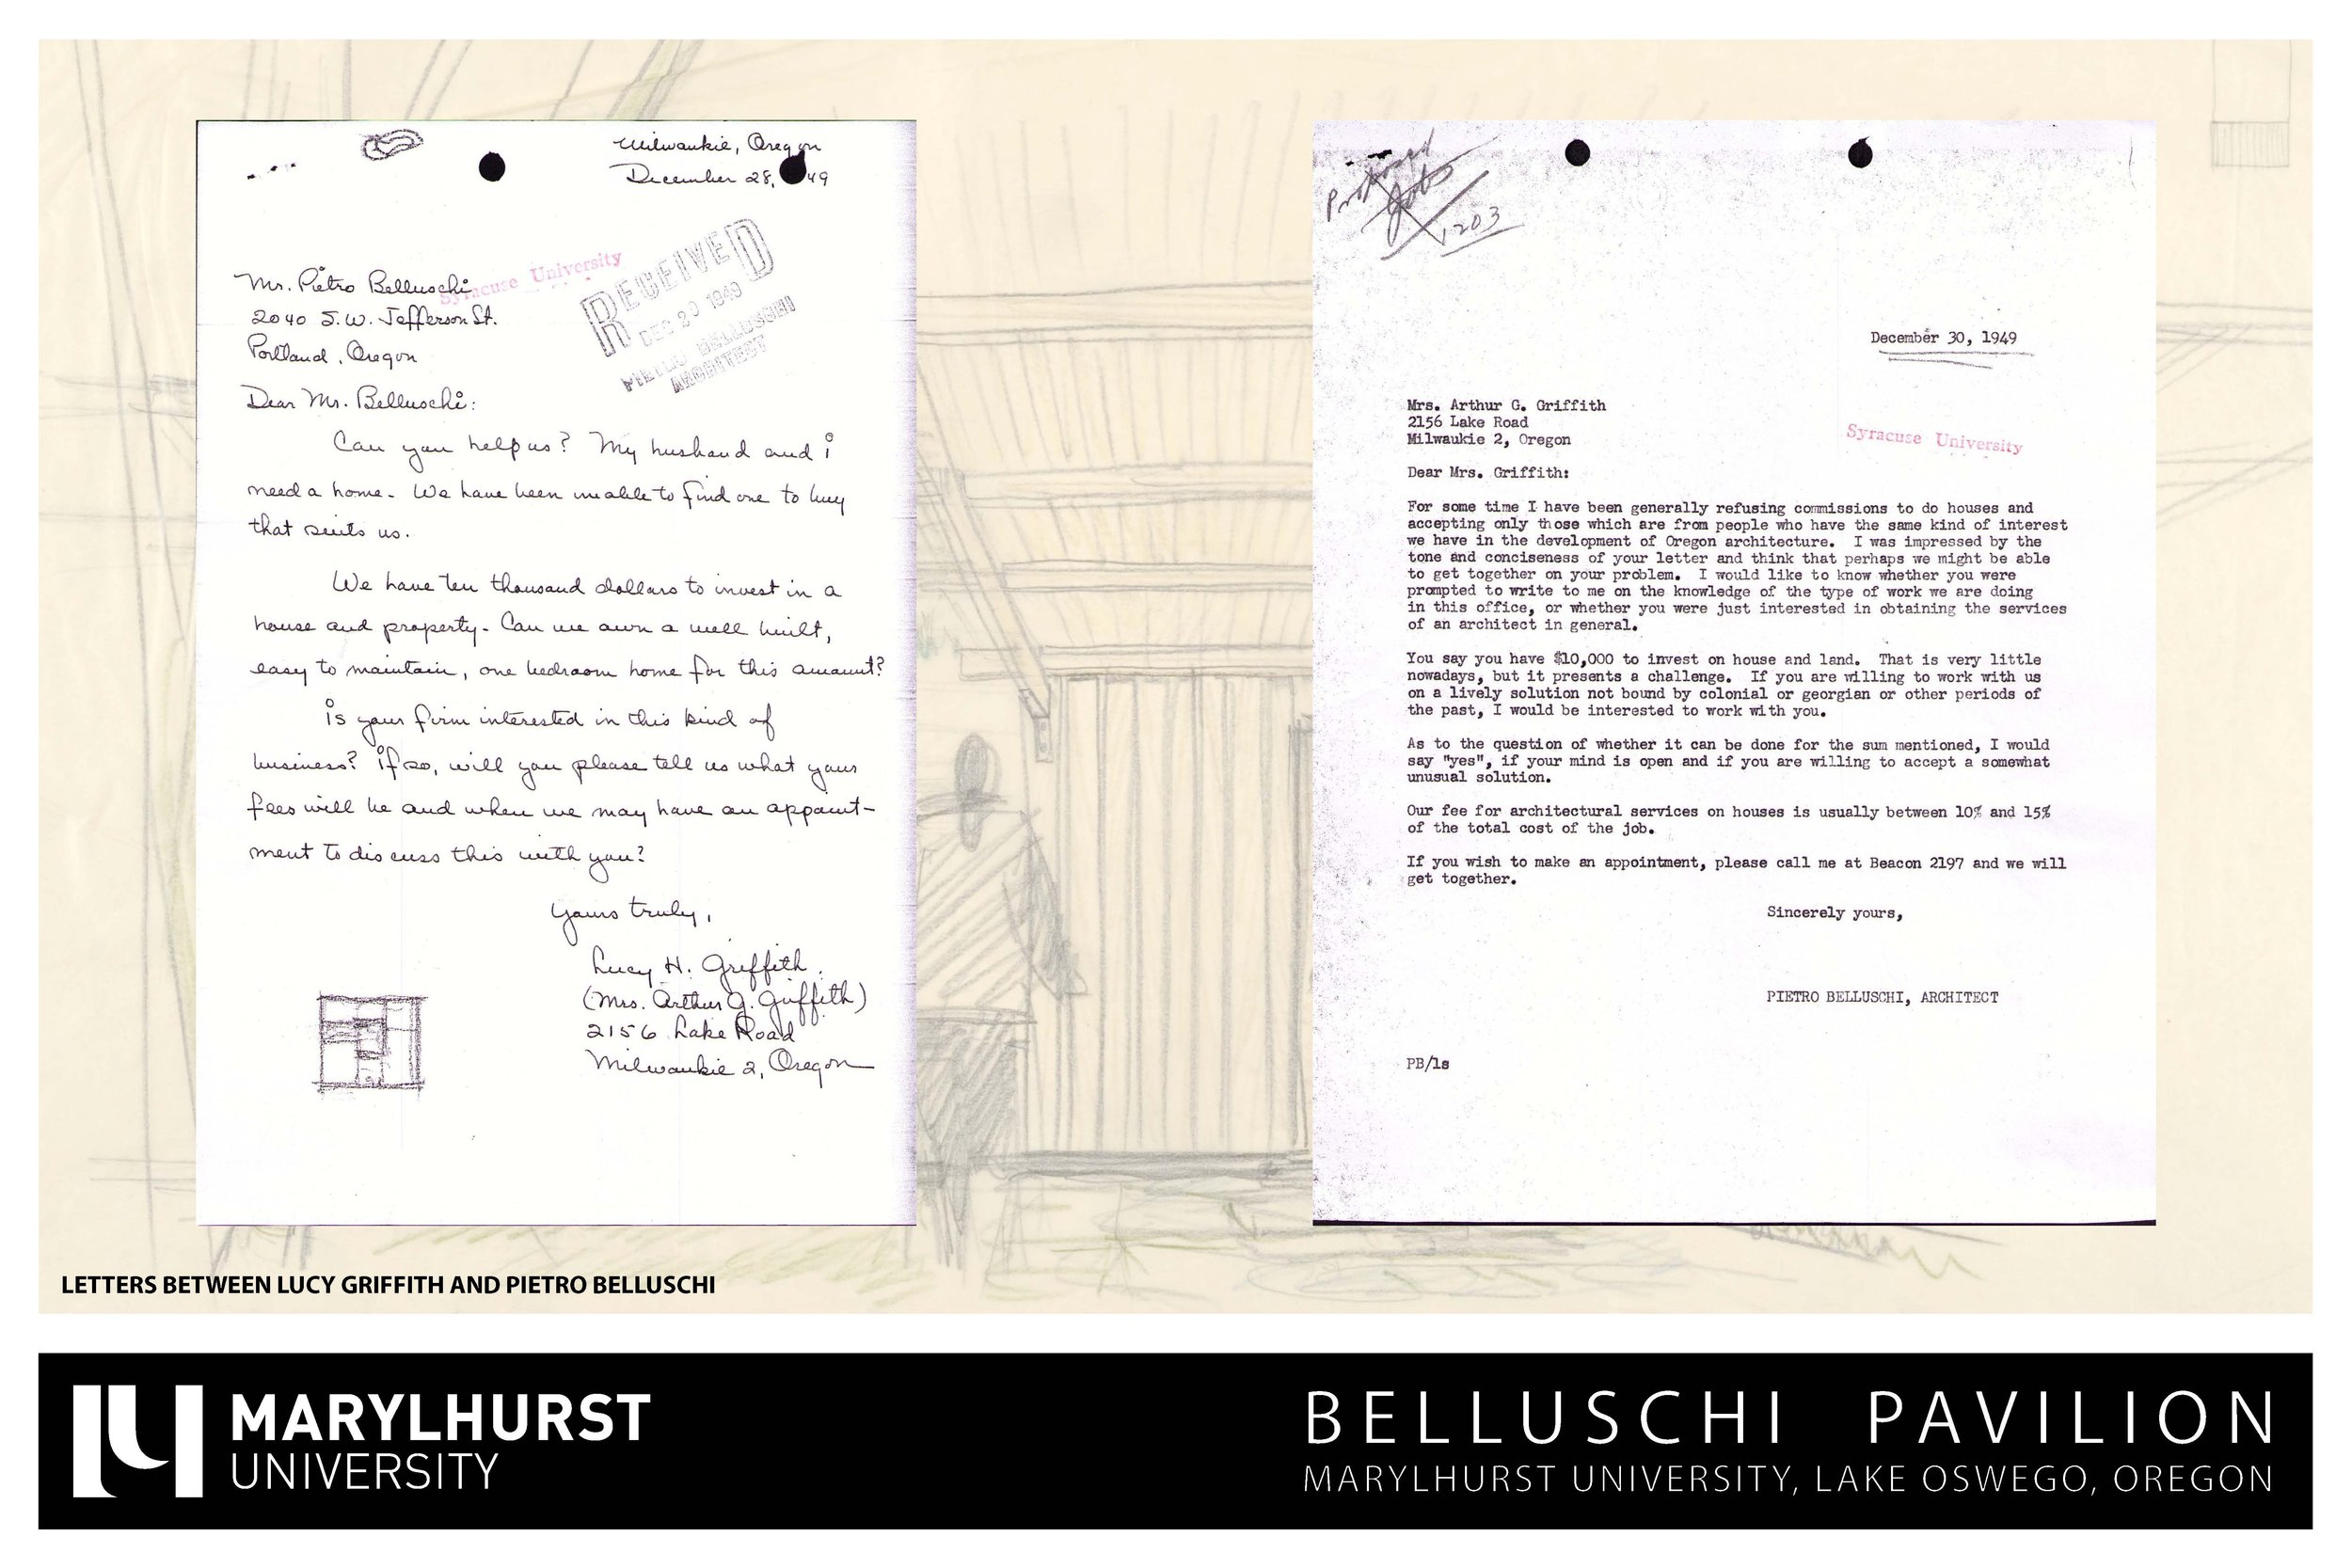 Milwaukie, Oregon
December 28, 49
Syracuse University
RECEIVED
DEC 29 1949
PIETRO BELLUSCHI
ARCHITECT
Mr. Pietro Belluschi
2040 S.W. Jefferson St.
Portland, Oregon
Dear Mr. Belluschi:
Can you help us? My husband and i
need a home. We have been unable to find one to buy
that suits us.
We have ten thousand dollars to invest in a
house and property. Can we own a well built,
easy to maintain, one bedroom home for this amount?
is your firm interested in this kind of
business? if so, will you please tell us what your
fees will be and when we may have an appoint-
ment to discuss this with you?
Yours truly,
Lucy H. Griffith
(Mrs. Arthur G. Griffith)
2156 Lake Road
Milwaukie 2, Oregon
Jobs
1203
December 30, 1949
Mrs. Arthur G. Griffith
2156 Lake Road
Milwaukie 2, Oregon
Syracuse University
Dear Mrs. Griffith:
For some time I have been generally refusing commissions to do houses and
accepting only those which are from people who have the same kind of interest
we have in the development of Oregon architecture. I was impressed by the
tone and conciseness of your letter and think that perhaps we might be able
to get together on your problem. I would like to know whether you were
prompted to write to me on the knowledge of the type of work we are doing
in this office, or whether you were just interested in obtaining the services
of an architect in general.
You say you have $10,000 to invest on house and land. That is very little
nowadays, but it presents a challenge. If you are willing to work with us
on a lively solution not bound by colonial or georgian or other periods of
the past, I would be interested to work with you.
As to the question of whether it can be done for the sum mentioned, I would
say "yes", if your mind is open and if you are willing to accept a somewhat
unusual solution.
Our fee for architectural services on houses is usually between 10% and 15%
of the total cost of the job.
If you wish to make an appointment, please call me at Beacon 2197 and we will
get together.
Sincerely yours,
PIETRO BELLUSCHI, ARCHITECT
PB/ls
LETTERS BETWEEN LUCY GRIFFITH AND PIETRO BELLUSCHI
MARYLHURST
UNIVERSITY
BELLUSCHI PAVILION
MARYLHURST UNIVERSITY, LAKE OSWEGO, OREGON